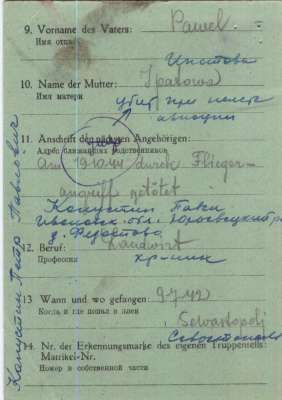 9. Vorname des Vaters: Pawel
Имя отца
Ипатова
10. Name der Mutter: Ipatowa
Имя матери
убит при налете
авиации
11. Anschrift der nächsten Angehörigen:
Адрес ближайших родственников
Am 19.10.44 durch Flieger-
angriff getötet
Капустин Павел
Ивановск. обл. Юрьевецкий р
д. Федотово
12. Beruf: Landwirt
Профессия
кр-нин
13 Wann und wo gefangen: 9.7.42
Когда и где попал в плен
Sewastopolj
Севастополь
14. Nr. der Erkennungsmarke des eigenen Truppenteils:
Matrikel-Nr.
Номер в собственной части
Капустин Петр Павлович